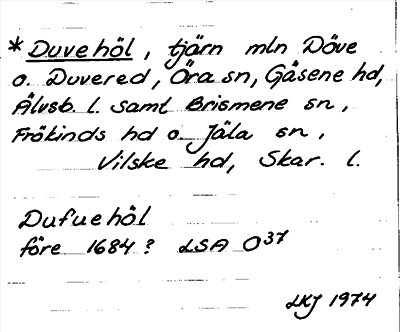 * Duvehöl, tjärn mln Döve
o. Duvered, Öra sn, Gäsene hd,
Älvsb. l. samt Brismene sn,
Frökinds hd o. Jäla sn,
Vilske hd, Skar. l.
Dufuehöl
före 1684? LSA O37
LKJ 1974